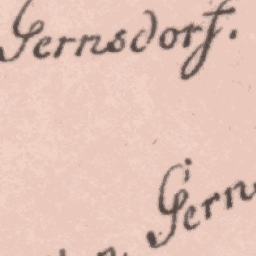 Gernsdorf.
Gern